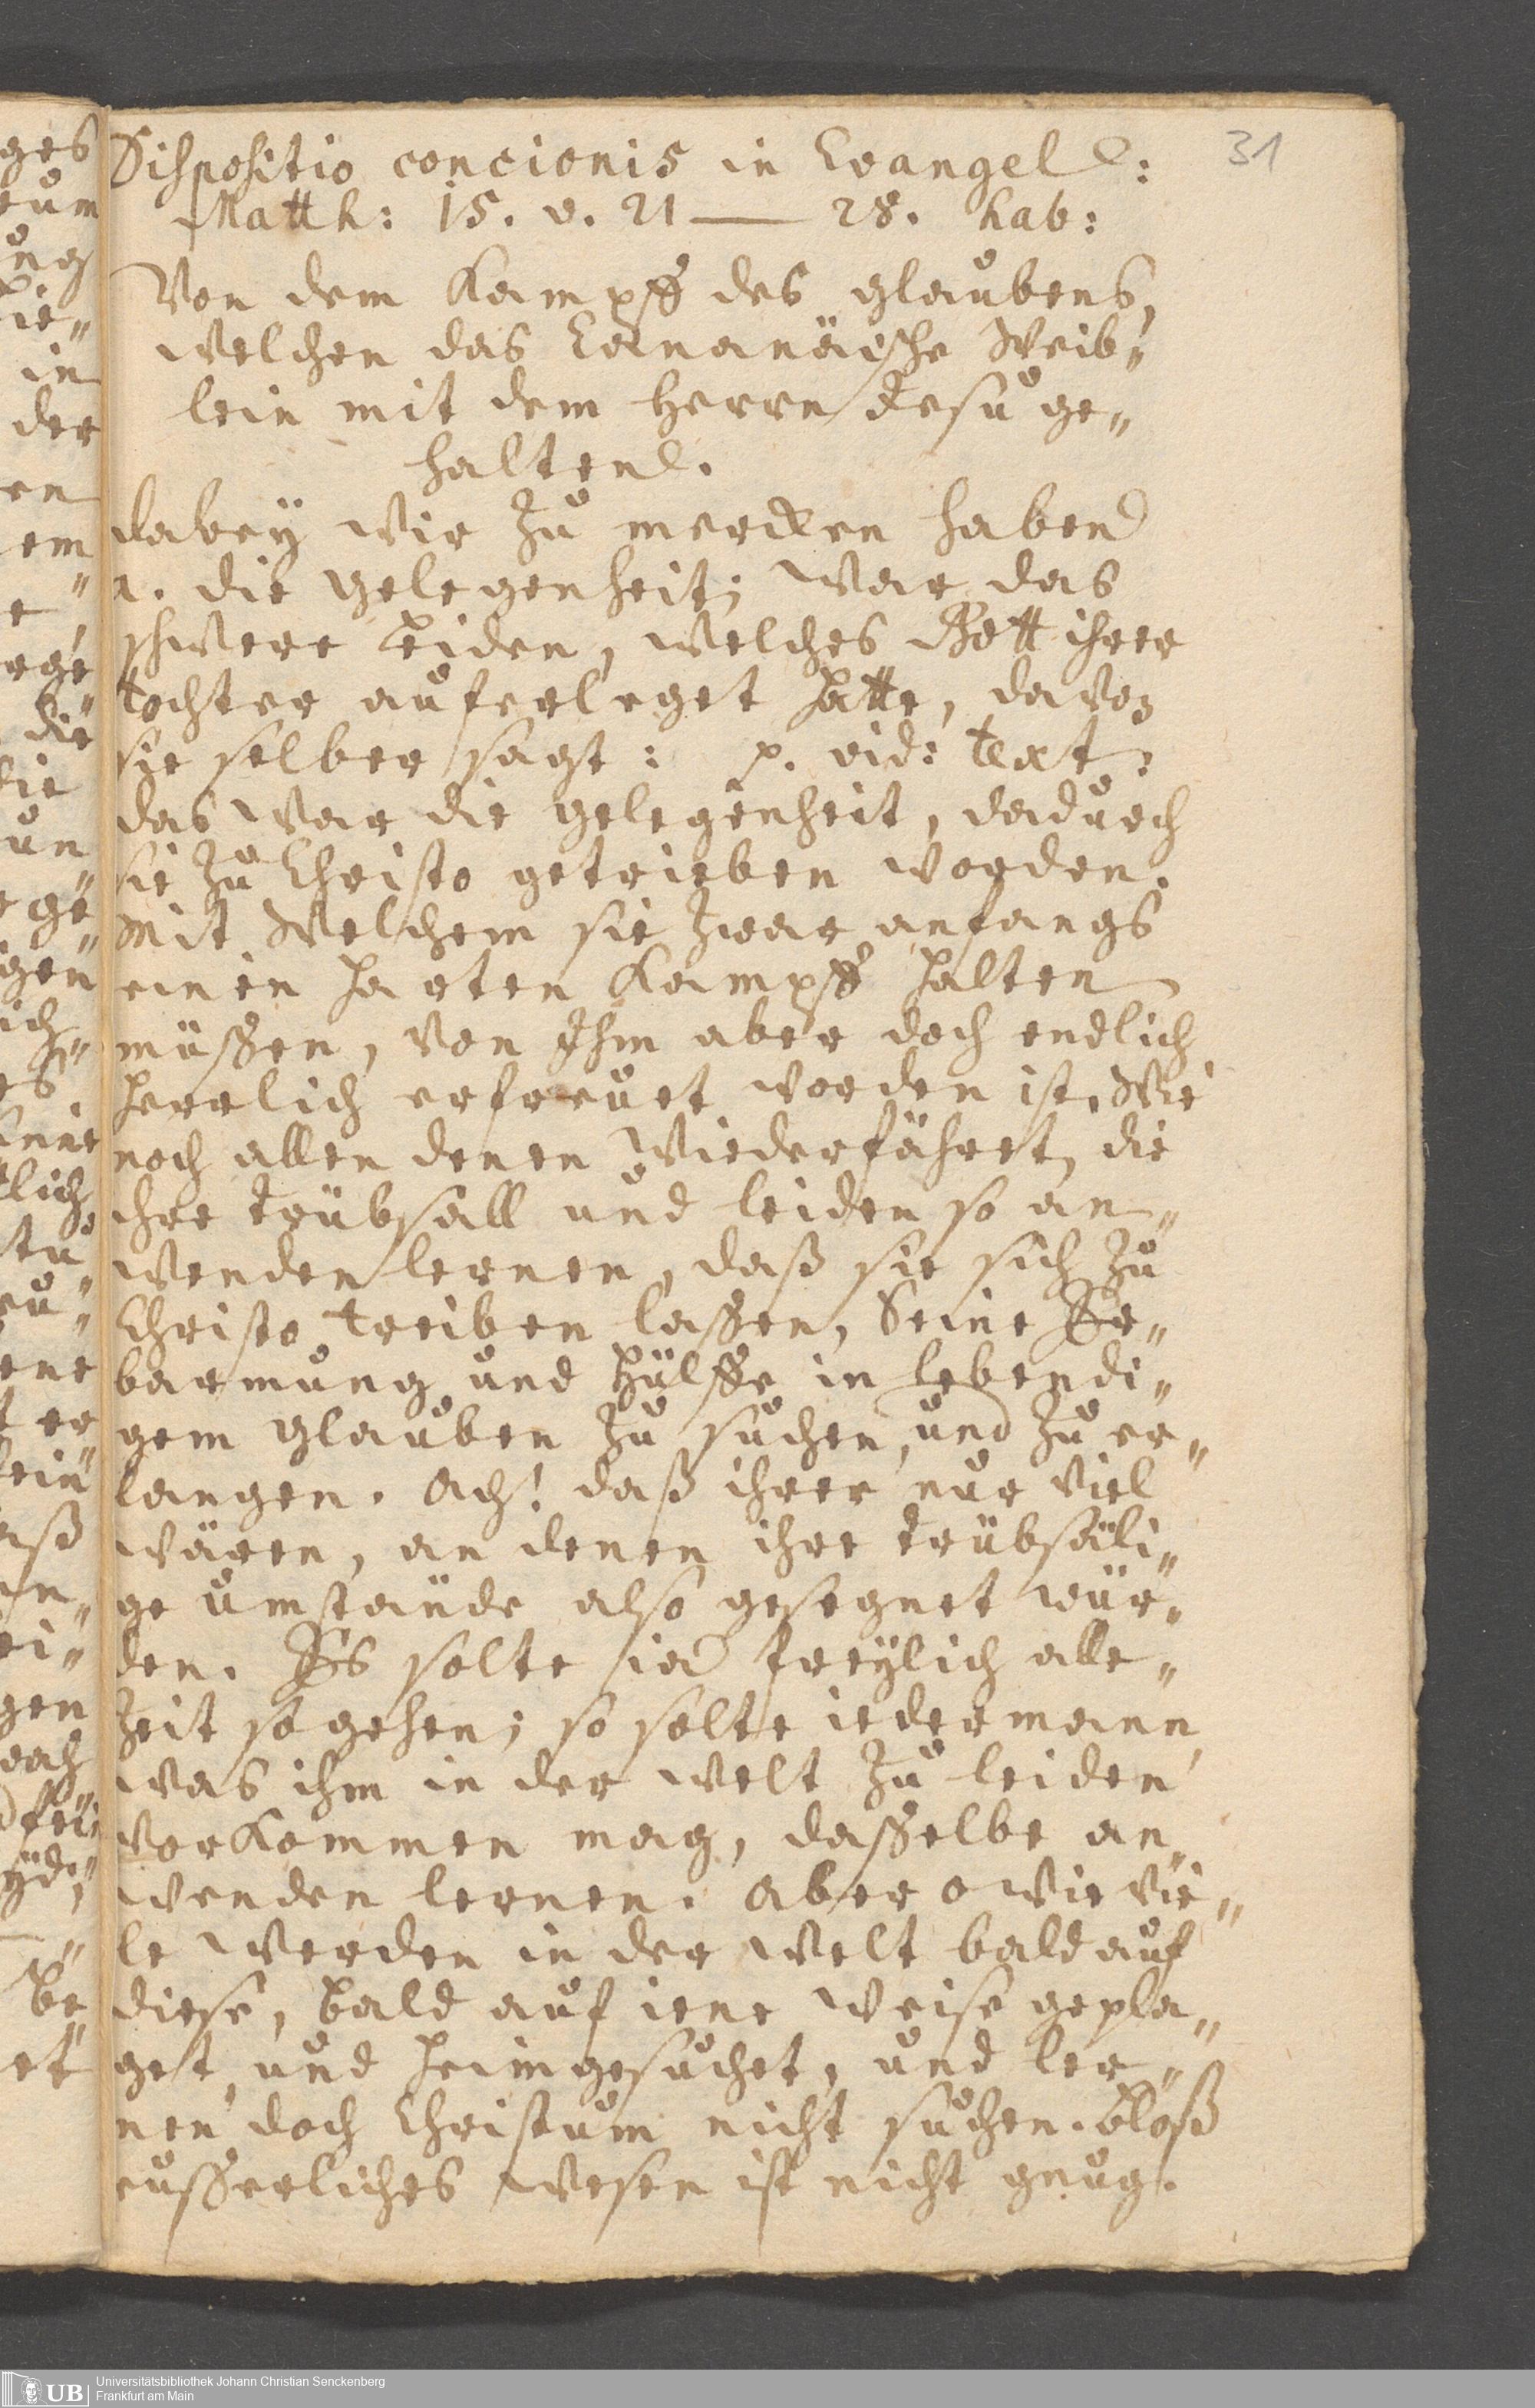 31
Dispositio concionis in Evangel:
Matth: 15. v. 21 — 28. hab:
Von dem Kampff des glaubens,
welchen das Cananäische Weib„
lein mit dem Herrn Jesu ge„
halten.
dabey wir zu mercken haben
1. die gelegenheit; war das
schwere Leiden, welches Gott ihrer
tochter auferleget hatte, davon
sie selber sagt: p. vid: text:
das war die gelegenheit, dadurch
sie zu Christo getrieben worden.
mit Welchem sie zwar anfangs
einen harten Kampff halten
müßen, von Ihm aber doch endlich
herrlich erfreuet worden ist. Wie
noch allen denen Wiederfähret, die
ihre trübsall und leiden so an„
wenden lernen, daß sie sich zu
Christo treiben laßen, Seine Er„
barmung und Hülffe in lebendi„
gem glauben zu suchen, und zu er„
langen. Ach! daß ihrer nur viel
wären, an denen ihre trübsäli„
ge umstände also gesegnet wür„
den. Es solte ia freylich alle„
zeit so gehen; so solte iedermann
was ihm in der welt zu leiden
vorkommen mag, daßelbe an„
wenden lernen. Aber o wie vie„
le werden in der welt bald auf
diese, bald auf iene weise gepla„
get, und heimgesuchet, und ler„
nen doch Christum nicht suchen. bloß
eußerliches wesen ist nicht gnug.
ges
der
em
die
gen
UB
Universitätsbibliothek Johann Christian Senckenberg
Frankfurt am Main